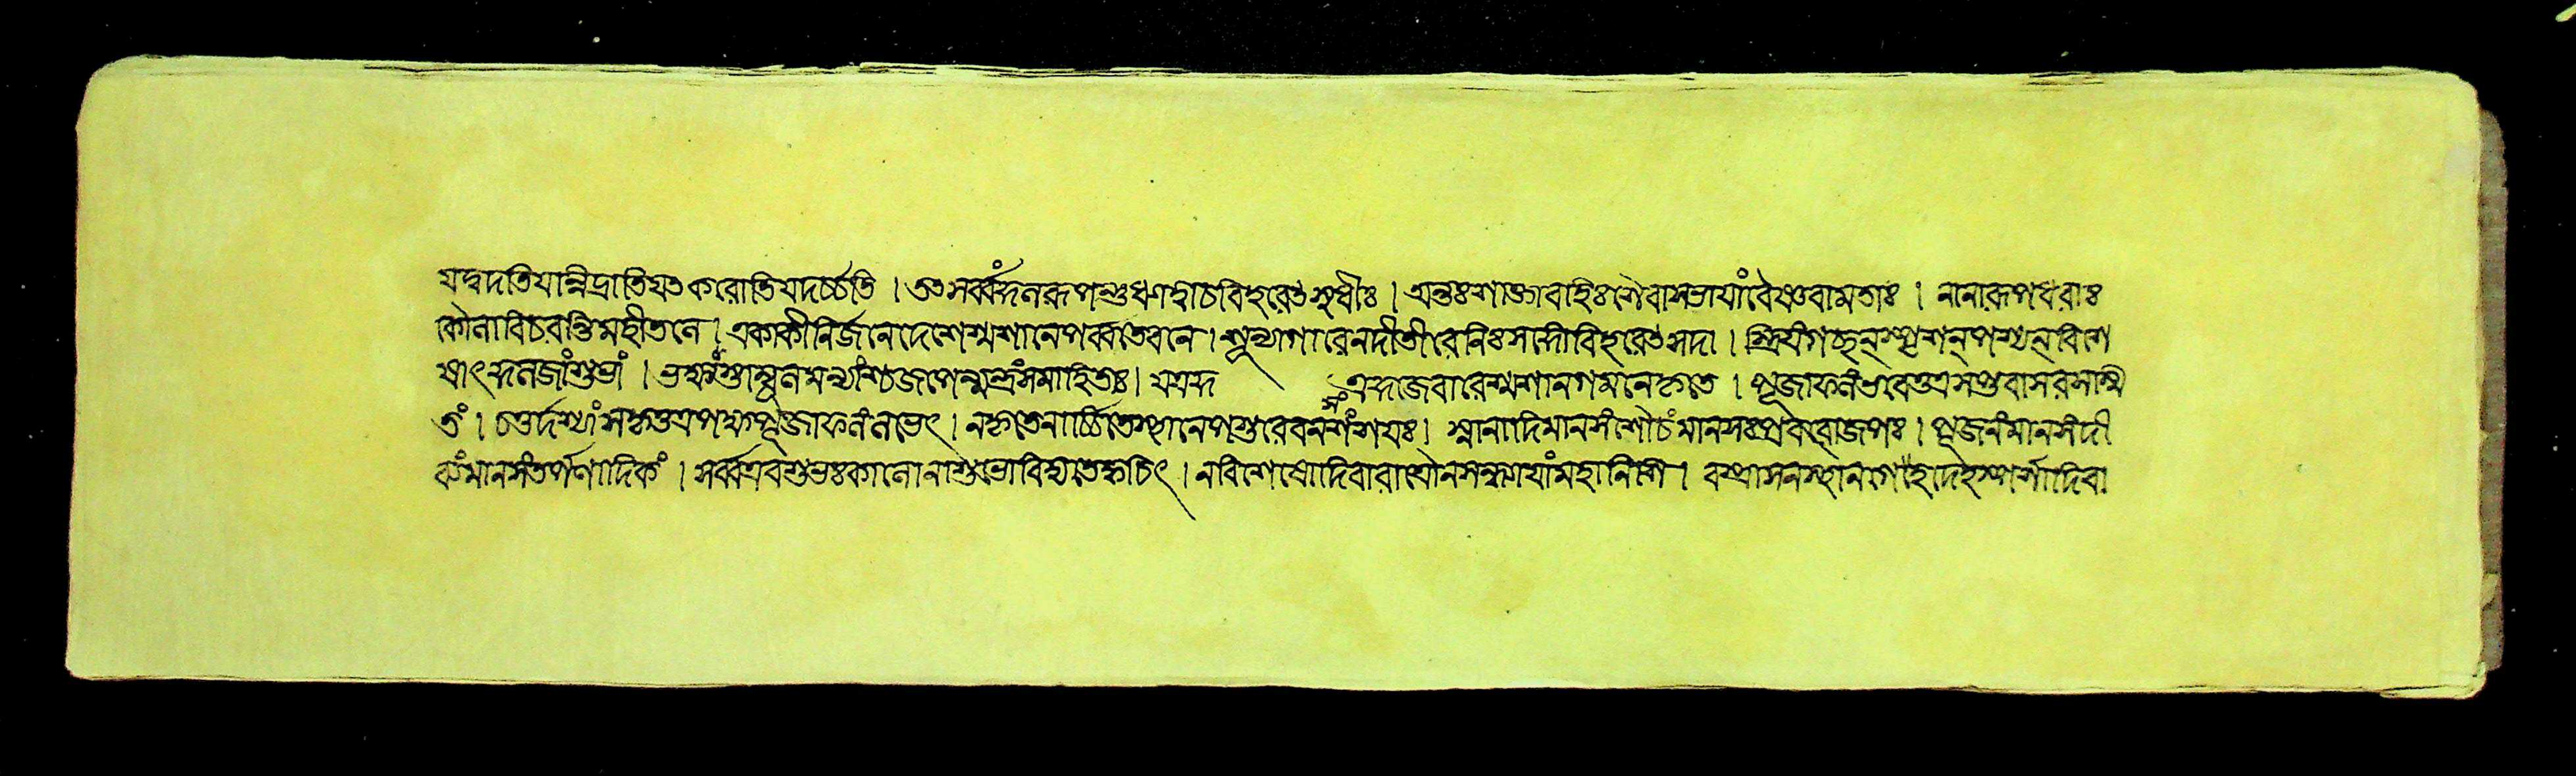 যদ্বদতি যান্নিদ্রাতি যৎ করোতি যদর্চ্চতি । তৎ সর্ব্বং কুলরূপন্তু ধ্যাত্বা চ বিহরেৎ সুধীঃ । অন্তঃশাক্তা বহিঃশৈবা সভায়াং বৈষ্ণবা মতাঃ । নানারূপধরাঃ
কৌলা বিচরন্তি মহীতলে । একাকী নির্জ্জনে দেশে শ্মশানে পর্ব্বতে বনে । শূন্যাগারে নদীতীরে নিঃসন্দো বিহরেৎ সদা । স্ত্রিয়ং গচ্ছন্ স্পৃশন্ পশ্যন্ বিশে
ষাৎ কুলজাং শুভাং । ভক্ষ্যং তাম্বূলমন্যাংশ্চ জপেন্মন্ত্রং সমাহিতঃ ।
জবারে শ্মশানগমনে কৃতে । পূজাফলং ভবেত্তত্র সপ্তবাসরসম্মি
তং । চতুর্দ্দশ্যাং পূজাফলং লভেৎ । ন কৃতে নার্চ্চিতে স্থানে পশুরেব ন সংশয়ঃ । স্নানাদি মানসং শৌচং মানসঃ প্রবরো জপঃ । পূজনং মানসং দী
মানসং তর্পণাদিকং । সর্ব্ব এব শুভঃ কালো নাশুভো বিদ্যতে ক্বচিৎ । ন বিশেষো দিবারাত্রৌ ন সন্ধ্যায়াং মহানিশি । বস্ত্রাসনস্থানগেহদেহস্পর্শাদিবা